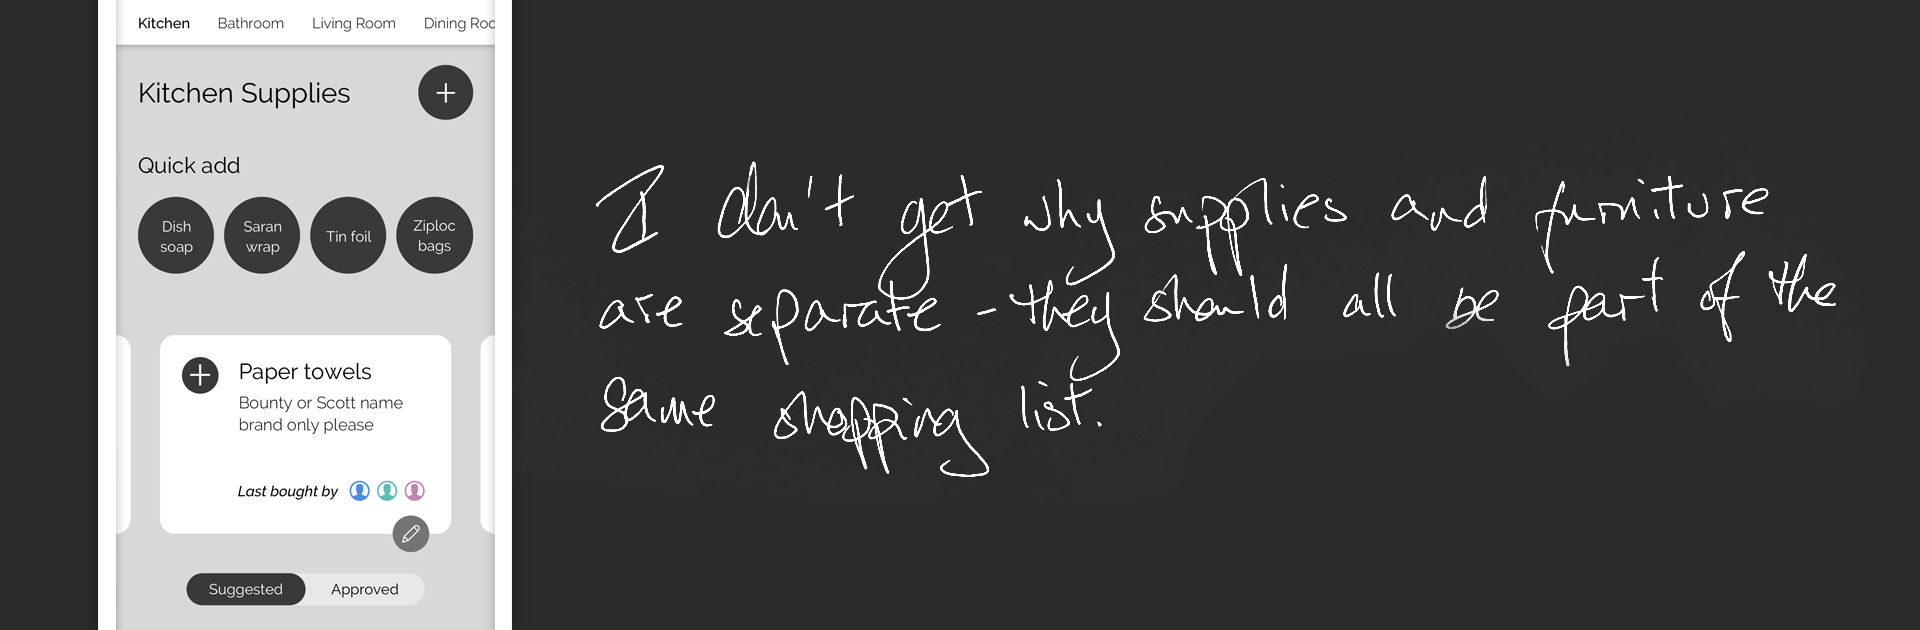 Kitchen Bathroom Living Room Dining Roo
Kitchen Supplies
Quick add
Dish soap
Saran wrap
Tin foil
Ziploc bags
Paper towels
Bounty or Scott name
brand only please
Last bought by
Suggested Approved
I don't get why supplies and furniture
are separate - they should all be part of the
same shopping list.